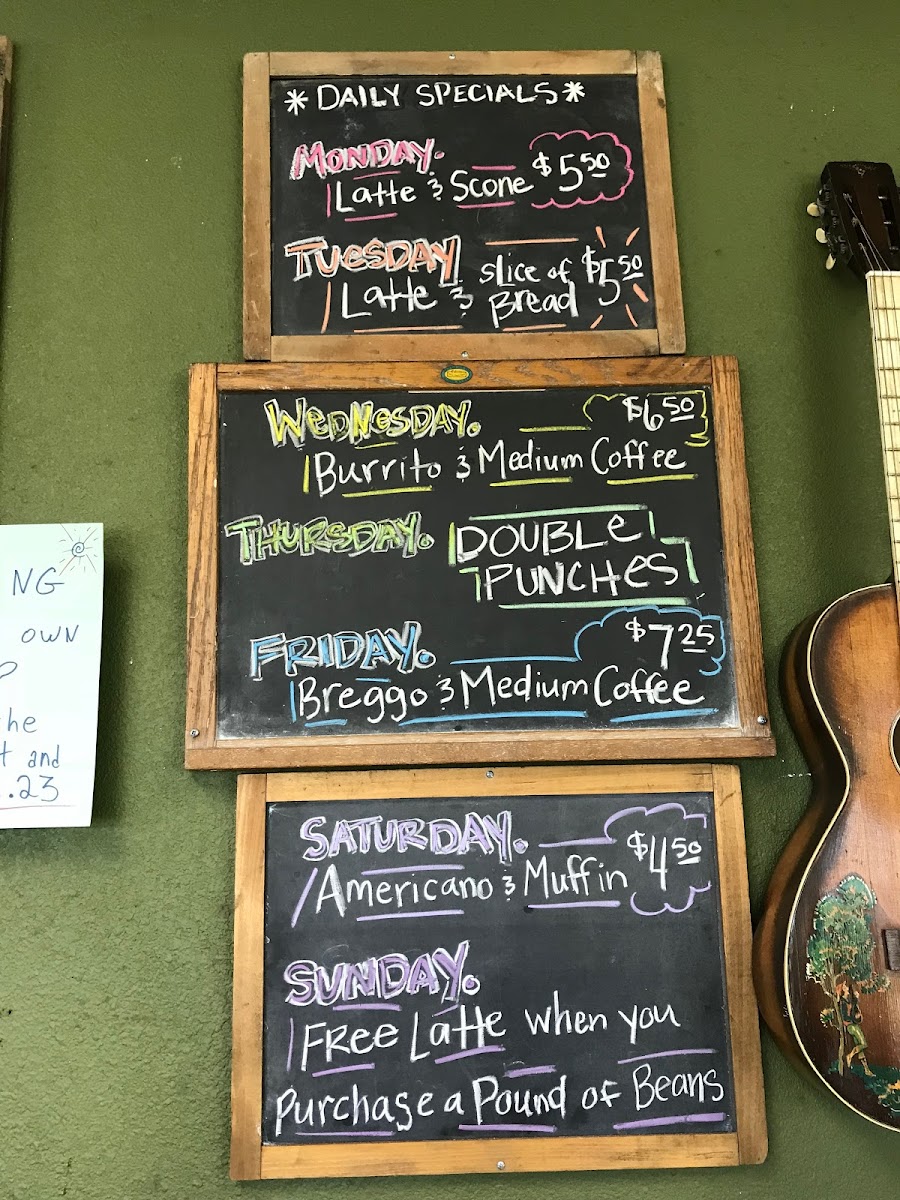 * DAILY SPECIALS *
MONDAY.
Latte & Scone $5.50
TUESDAY
Latte & slice of Bread $5.50
WEDNESDAY. $6.50
Burrito & Medium Coffee
THURSDAY. DOUBLE
PUNCHES
FRIDAY. $7.25
Breggo & Medium Coffee
SATURDAY.
Americano & Muffin $4.50
SUNDAY.
FREE Latte when you
Purchase a Pound of Beans
NG
OWN
?
he
t and
.23